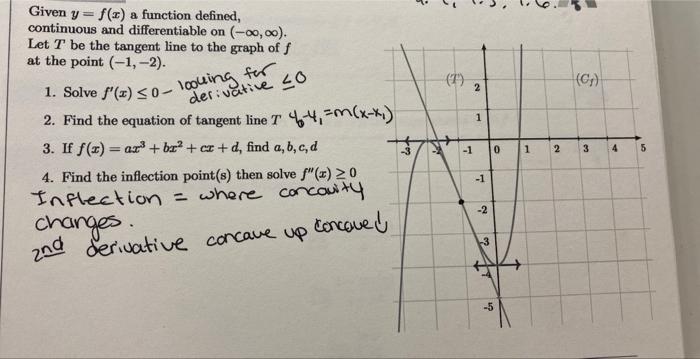 Given y = f(x) a function defined,
continuous and differentiable on (−∞, ∞).
Let T be the tangent line to the graph of f
at the point (−1, −2).
1. Solve f′(x) ≤ 0 – looking for
derivative ≤0
2. Find the equation of tangent line T y-y₁=m(x-x₁)
3. If f(x) = ax³ + bx² + cx + d, find a, b, c, d
4. Find the inflection point(s) then solve f″(x) ≥ 0
Inflection = where concavity
changes.
2nd derivative concave up
(T)
(C_f)
2
1
-3 -2 -1 0 1 2 3 4 5
-1
-2
-3
-4
-5